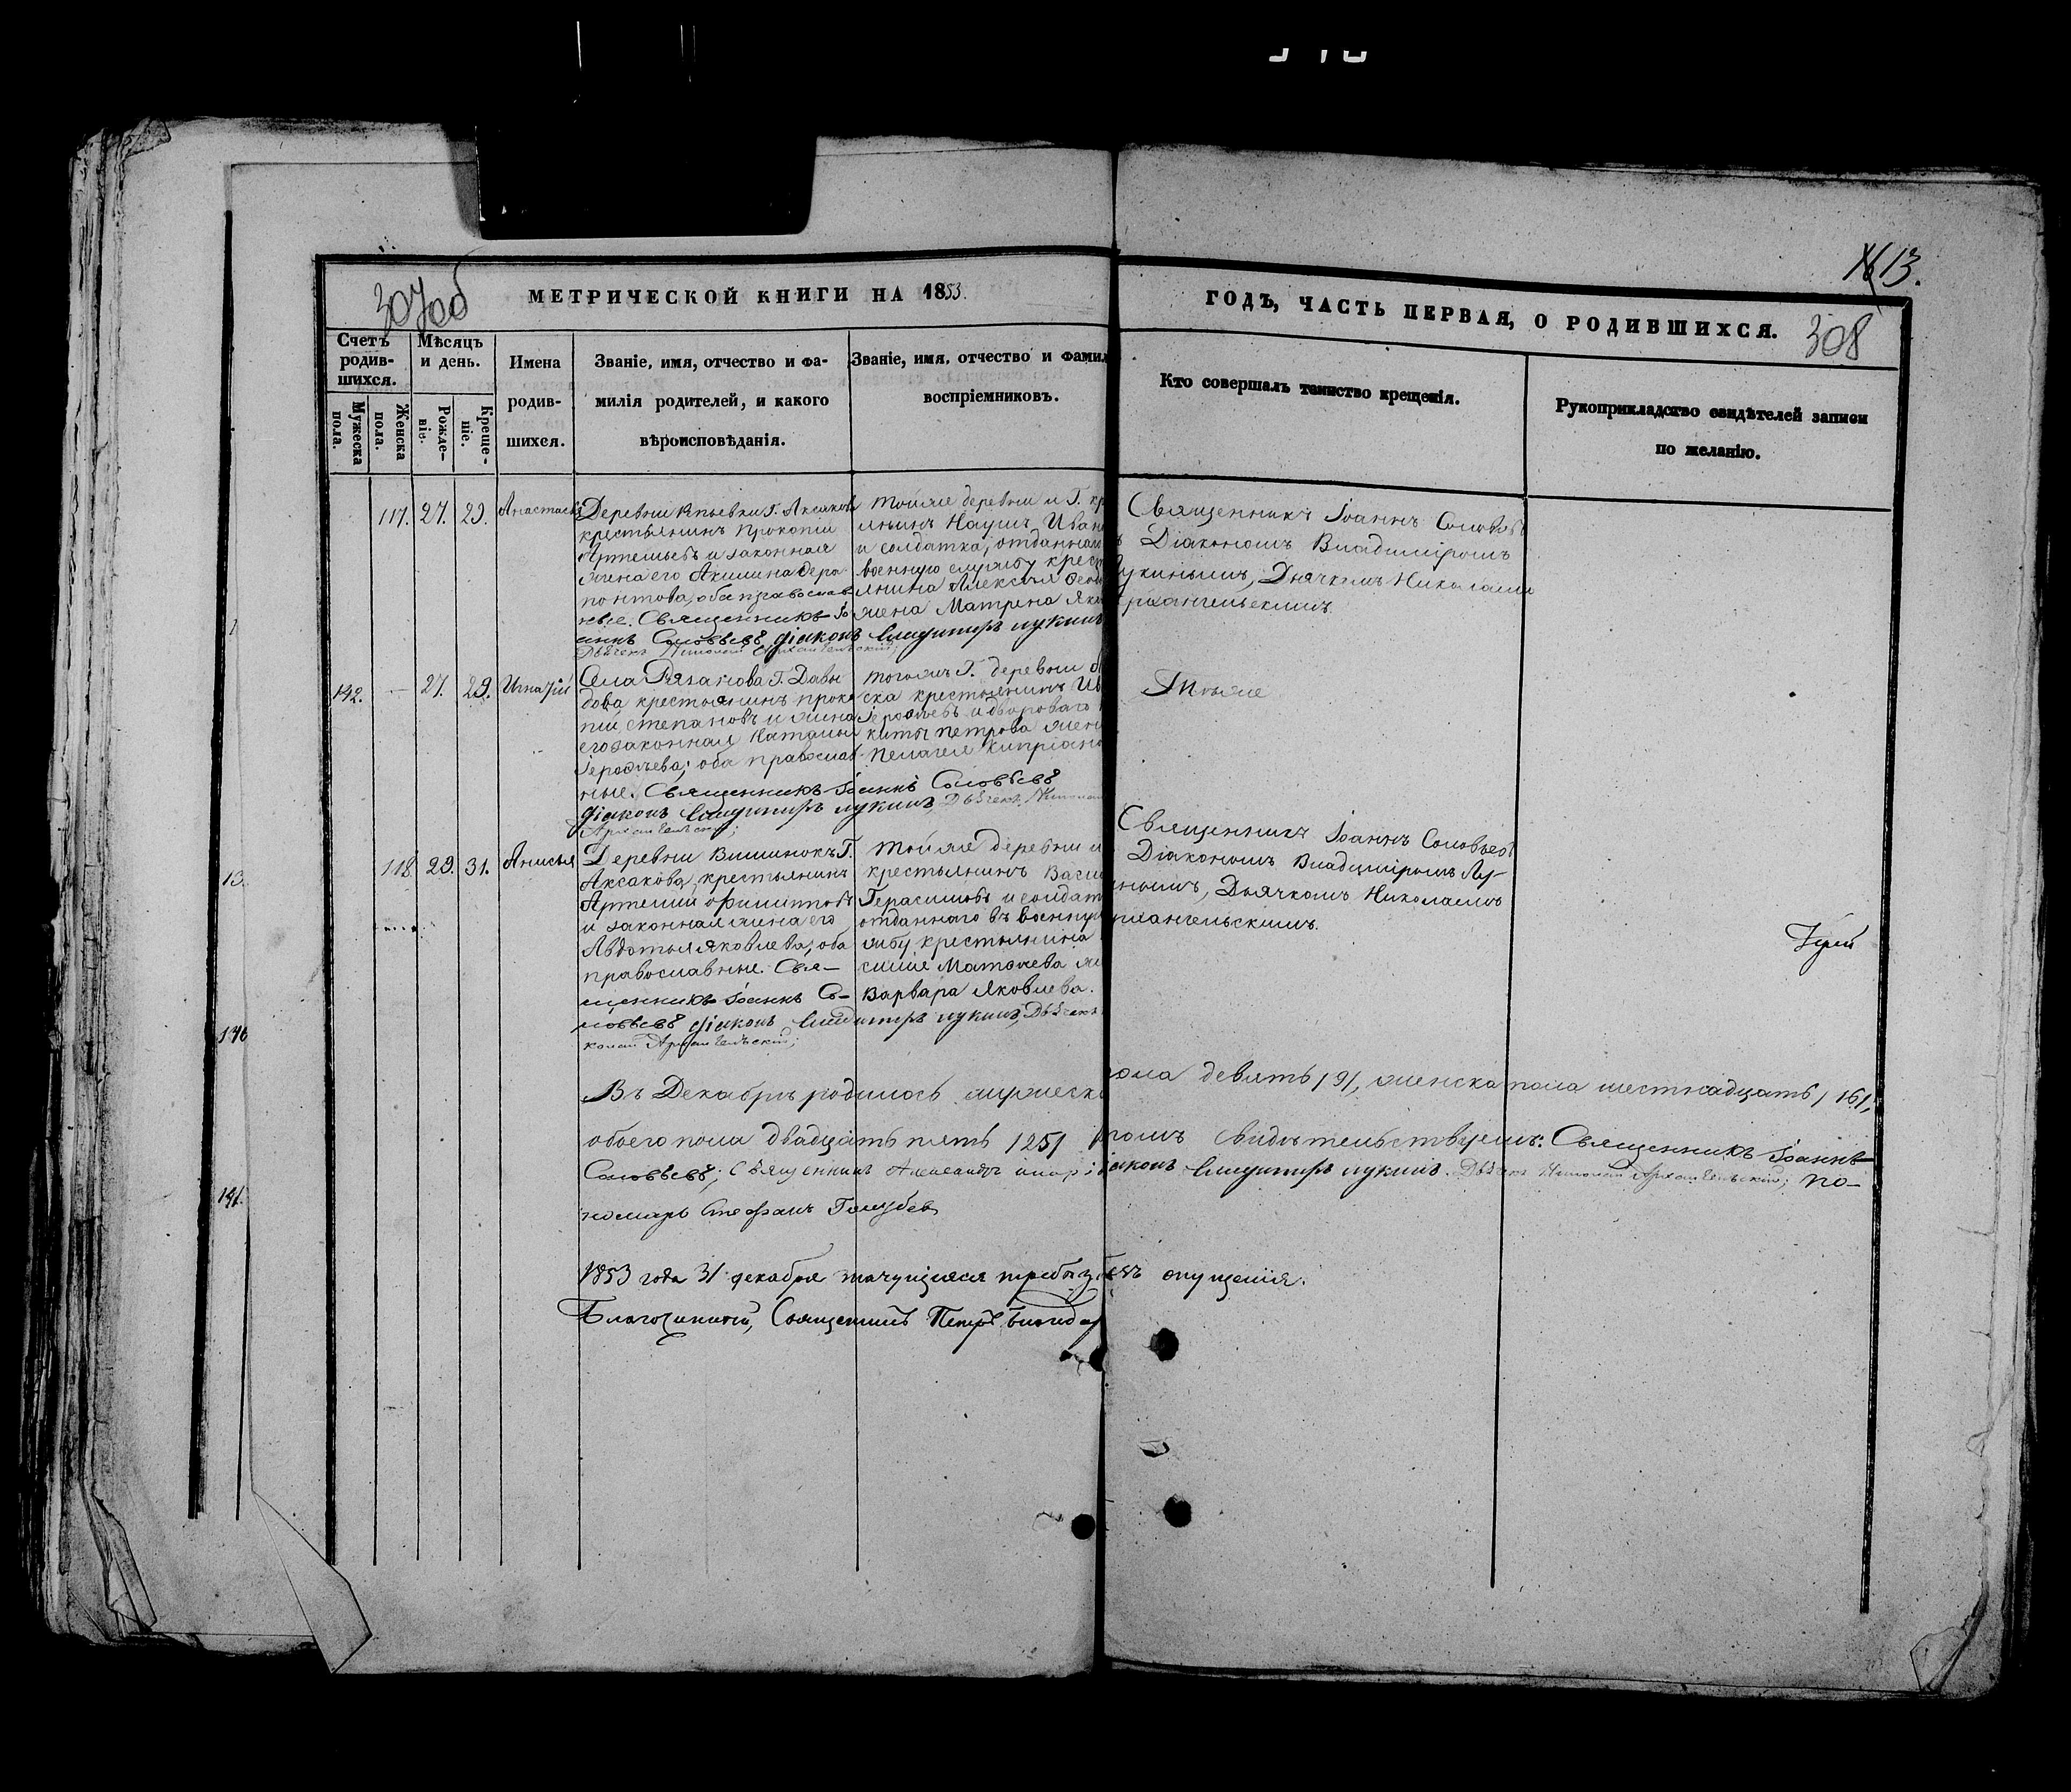 307об
МЕТРИЧЕСКОЙ КНИГИ НА 1853.
ГОДЪ, ЧАСТЬ ПЕРВАЯ, О РОДИВШИХСЯ.
13.
308
Счетъ родив-шихся.
Мужеска пола.
Женска пола.
Мѣсяцъ и день.
Рожде-нія.
Креще-ніе.
Имена
родив-
шихся.
Званіе, имя, отчество и фа-
милія родителей, и какого
вѣроисповѣданія.
Званіе, имя, отчество и фамил
воспріемниковъ.
Кто совершалъ таинство крещенія.
Рукоприкладство свидѣтелей записи
по желанію.
117. 27. 29. Анастасія
Деревни Г. Аксакова
крестьянинъ Прокопій
Артемьевъ и законная
жена его Акилина Фера-
понтова, оба православ-
ные. Священникъ Іо-
аннъ Соловьевъ діаконъ Владимиръ Лукинъ
Дьячекъ Николай Архангельскій;
Той же деревни и Г. кр
янинъ Наумъ Иван
и солдатка, отданнаго
военную службу крест
янина Алексѣя
жена Матрена Як
Священникъ Іоаннъ Соловьев
Діакономъ Владиміромъ
укинымъ, Дьячкомъ Николаемъ
рхангельскимъ.
142. — 27. 29. Игнатій
Села Рязанова Г. Давы
дова крестьянинъ Проко
пій Степановъ и жена
его законная Наталья
Іерофѣева; оба православ-
ные. Священникъ Іоаннъ Соловьевъ
діаконъ Владимиръ Лукинъ, Дьячекъ Николай
Архангельскій;
Тогожъ Г. деревни
ска крестьянинъ Ив
Іерофѣевъ и двороваго
киты Петрова жен
Пелагея Кипріано
Тѣ же
118. 29. 31. Анисья
Деревни Вишенокъ Г.
Аксакова, крестьянинъ
Артемій Филиповъ
и законная жена его
Авдотья Яковлева, оба
православные. Свя-
щенникъ Іоаннъ Со-
ловьевъ діаконъ Владимиръ Лукинъ, Дьячекъ
колай Архангельскій;
Той же деревни и
крестьянинъ Васи
Герасимовъ и солдат
отданнаго въ военну
жбу крестьянина
Матвѣева же
Варвара Яковлева.
Священникъ Іоаннъ Соловьев
Діакономъ Владиміромъ Лу-
инымъ, Дьячкомъ Николаемъ
рхангельскимъ.
13.
140
141.
Въ Декабрѣ родилось мужеск ола девять /9/, женска пола шестнадцать /16/,
обоего пола двадцать пять /25/ томъ свидѣтельствуемъ: Священникъ Іоаннъ
Соловьевъ; Священникъ Александръ діаконъ Владимиръ Лукинъ. Дьячекъ Николай Архангельскій; по-
номарь Стефанъ Голубев
1853 года 31 декабря опущенія.
Благочинный, Священникъ Петръ